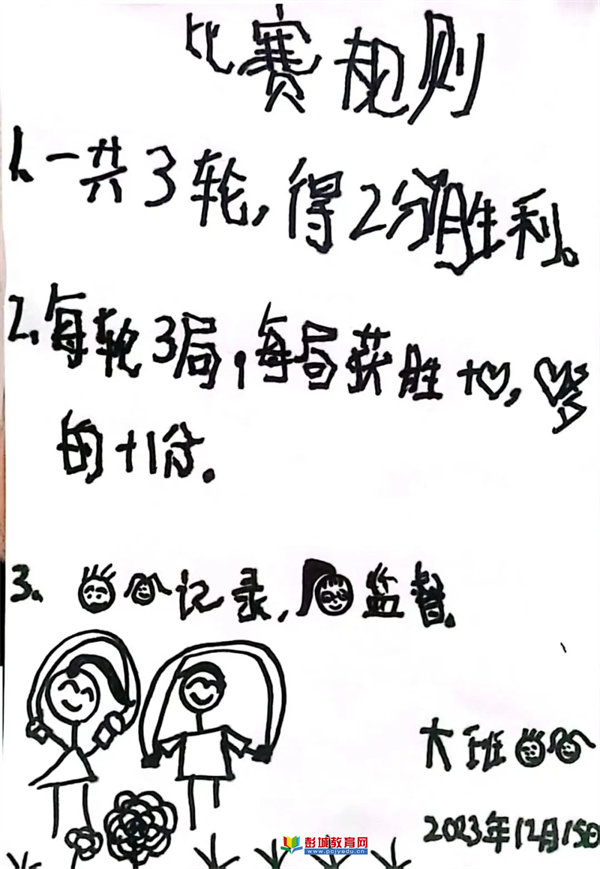 比赛规则
1.一共3轮,得2分胜利。
2.每轮3局,每局获胜+♡,♡多
的+1分。
3、记录,监督。
大班
2023年12月15日
彭城教育网
www.pcjyedu.cn